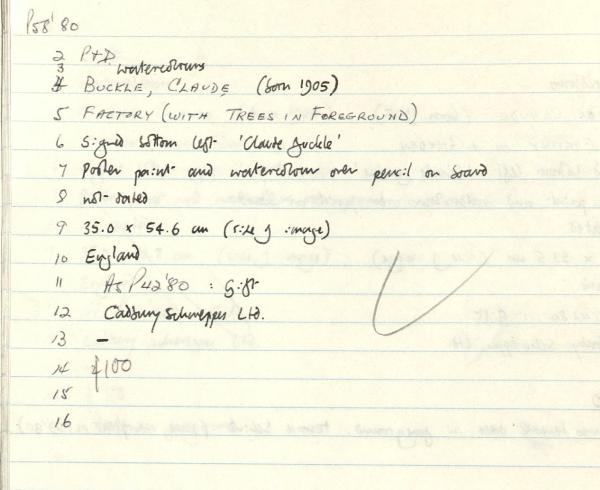 P58'80
2 P+D.
3 watercolours
4 BUCKLE, CLAUDE (born 1905)
5 FACTORY (WITH TREES IN FOREGROUND)
6 Signed bottom left 'Claude Buckle'
7 Poster paint and watercolour over pencil on board
8 not dated
9 35.0 x 54.6 cm (size of image)
10 England
11 As P42'80 : Gift
12 Cadbury Schweppes Ltd.
13 –
14 £100
15
16